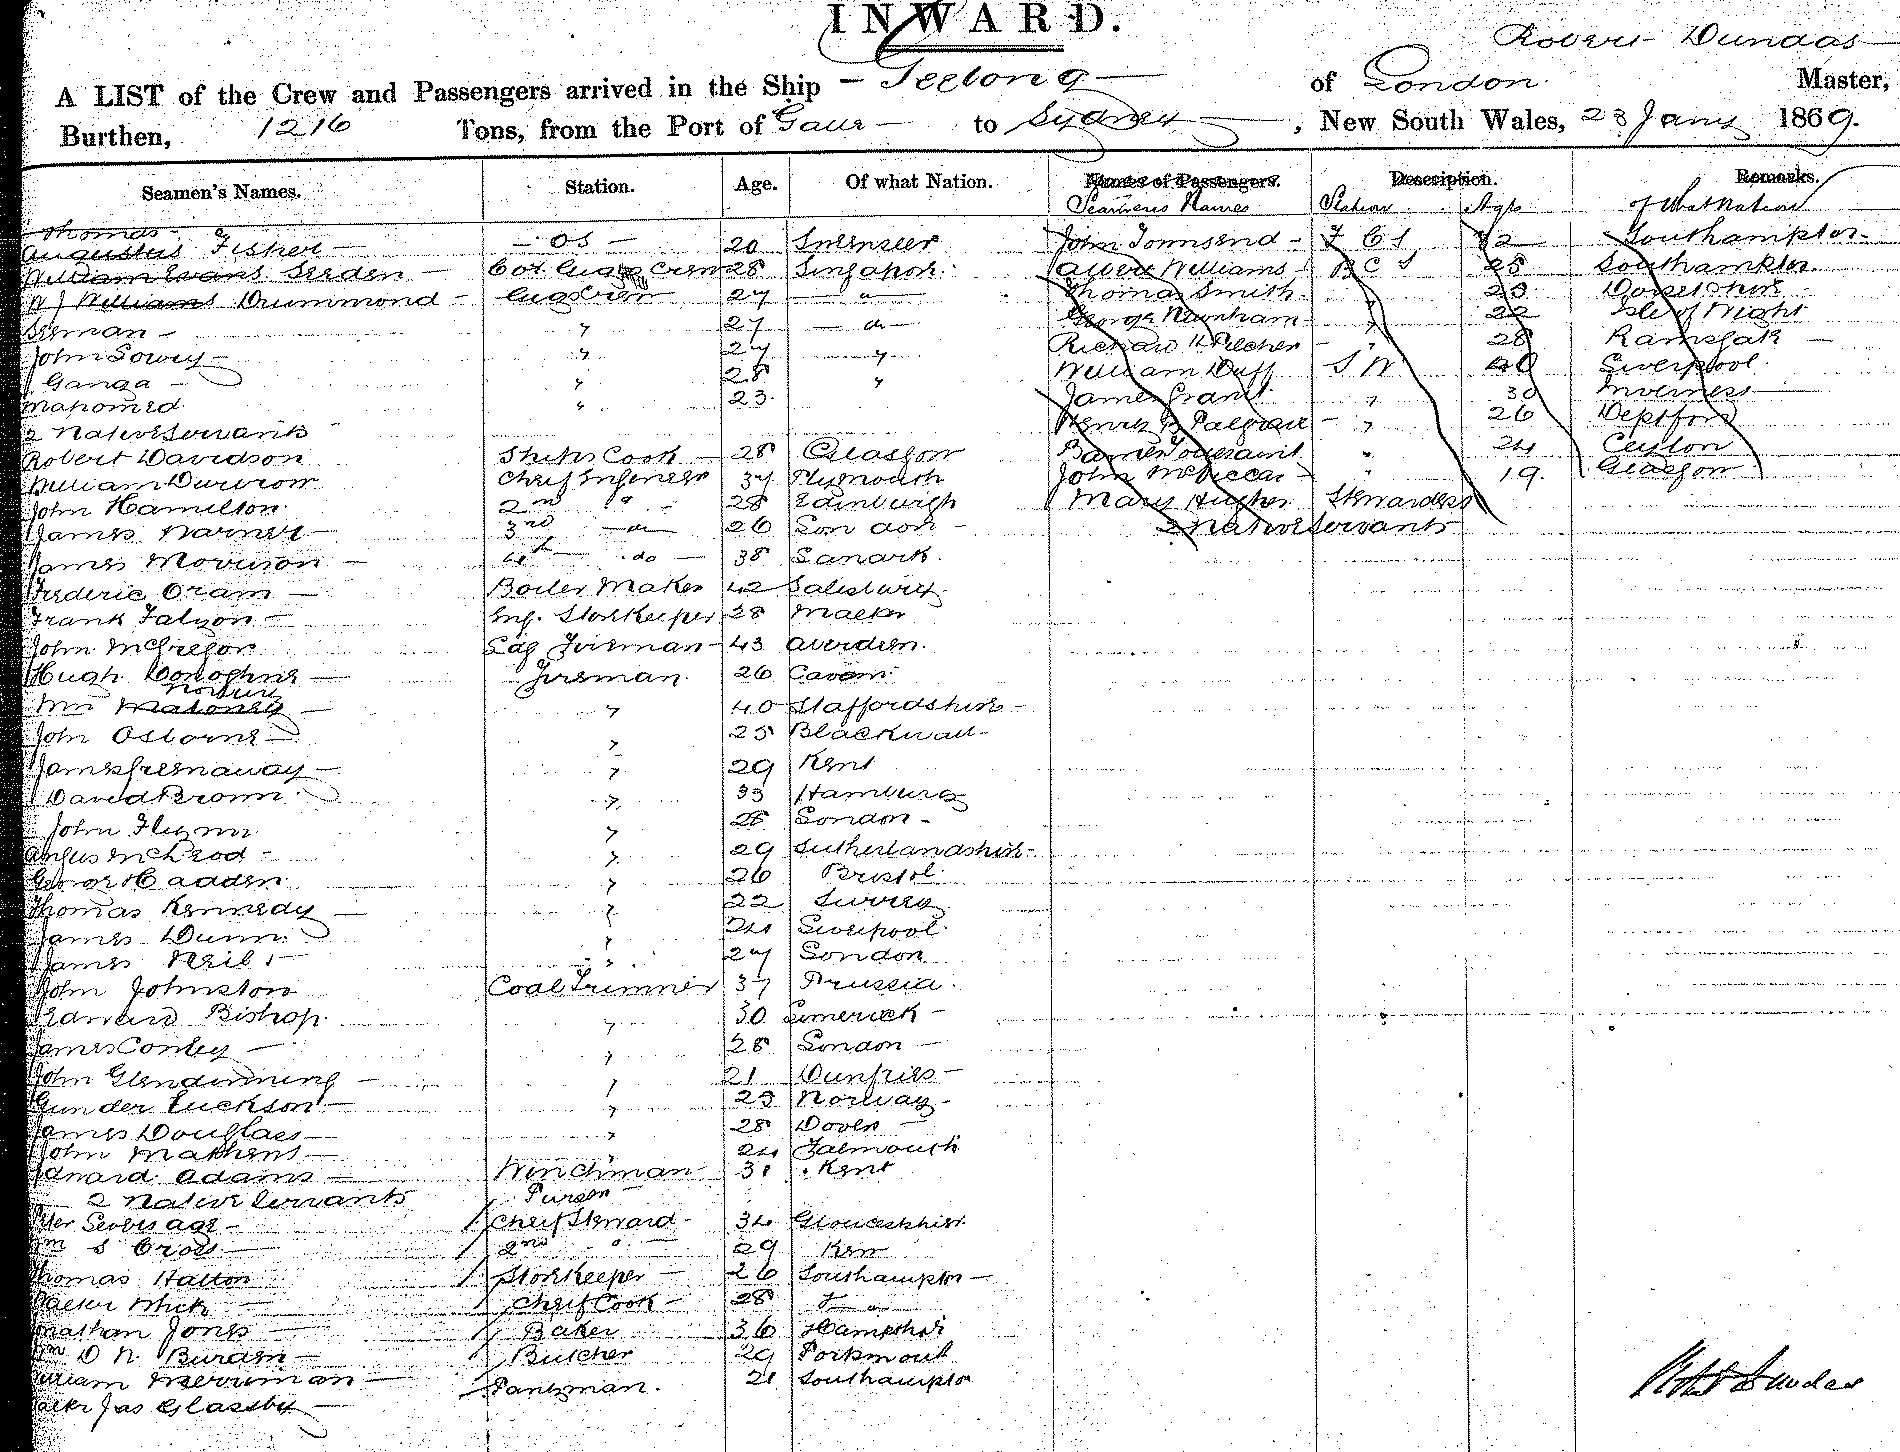 INWARD.
Robert Dundas
A LIST of the Crew and Passengers arrived in the Ship - Geelong - of London Master,
Burthen, 1216 Tons, from the Port of to Sydney, New South Wales, 23 Jany 1869.
Seamen's Names. Station. Age. Of what Nation. Names of Passengers. Description. Remarks.
Seamens Names Station Age of What Nation
Thomas
Augustus Fisher - OS - 20 John Townsend - 32 Southampton
William Evans 28 Singapore Albert Williams - 25 Southampton
W J Williams Drummond - 27 " Thomas Smith 23 Dorsetshire
" 27 - do - George 22 Isle of Wight
John " 27 " Richard H Pilcher - " 28 Ramsgate
Ganga - " 28 " William Duff S W 40 Liverpool
Mahomed " 23 James Grant " 30 Inverness
2 Native Servants Henry - " 26 Deptford
Robert Davidson Ships Cook - 28 Glasgow " 24 Ceylon
William Chief Engineer 37 Plymouth John - " 19 Glasgow
John Hamilton 2nd " 28 Edinburgh Mary Hughes Stewardess
James Warner 3rd - do 26 London - 2 Native Servants
James Morrison - 4th - do - 38 Lanark
Frederic Oram - Boiler Maker 42
Frank Falzon - Eng. Storekeeper 28 Malta
John McGregor Fireman - 43 Aberdeen
Hugh Donoghue - Fireman 26 Cavan
Maloney - " 40 Staffordshire -
John Osborne - " 25 Blackwall -
James Greenaway - " 29 Kent
David Brown " 33 Hamburg
John Flynn " 28 London -
Angus McLeod - " 29 Sutherlandshire -
George Hadden " 26 Bristol
Thomas Kennedy - " 22 Surrey
James Dunn " 24 Liverpool
James Neil - " 27 London
John Johnston Coal Trimmer 37 Prussia
Edward Bishop " 30 Limerick -
James Conley - " 28 London -
John Glendinning - " 21 Dumfries -
Gunder - " 25 Norway -
James Douglass - " 28 Dover -
John Mathews - " 24 Falmouth
Edward Adams - Winchman 31 Kent
- 2 Native Servants Purser
Chief Steward - 34 Gloucestshire
Wm S Cross - 2nd " 29 Kent
Thomas Hatton Storekeeper - 26 Southampton -
Walter White - Chief Cook - 28 do
Jonathan Jones - Baker 36 Hampshire
Wm D N Burden - Butcher 29 Portsmouth
William Merriman - Pantryman. 21 Southampton
Walter Jas Glassby -
Robt Dundas